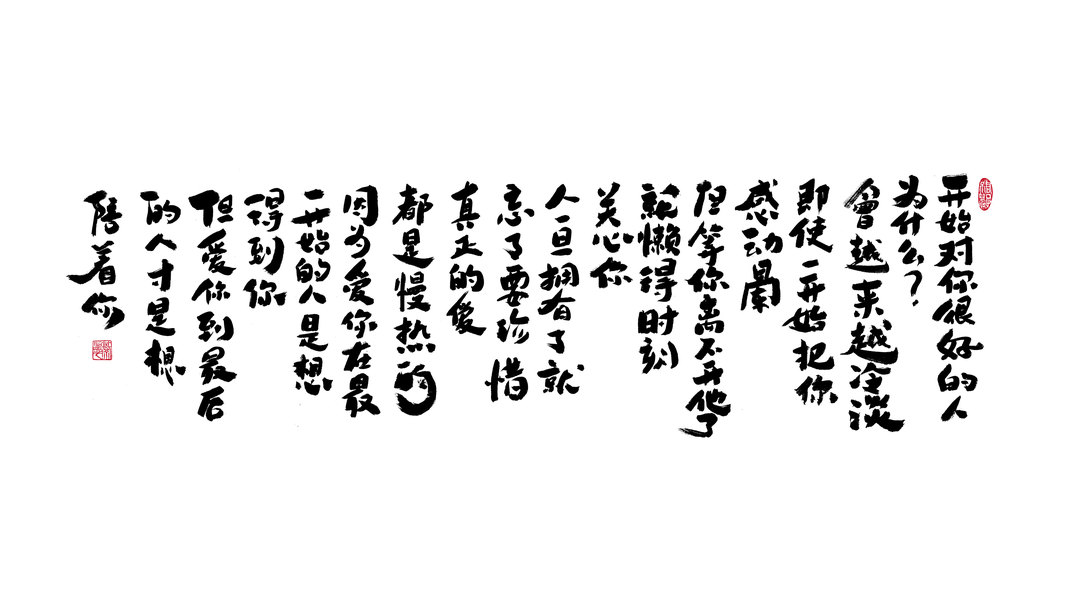 开始对你很好的人
为什么?
會越来越冷淡
即使一开始把你
感动
但等你离不开他了
就懒得时刻
关心你
人一旦拥有了就
忘了要珍惜
真正的愛
都是慢热的
因为愛你在最
一开始的人是想
得到你
但愛你到最后
的人才是想
陪着你